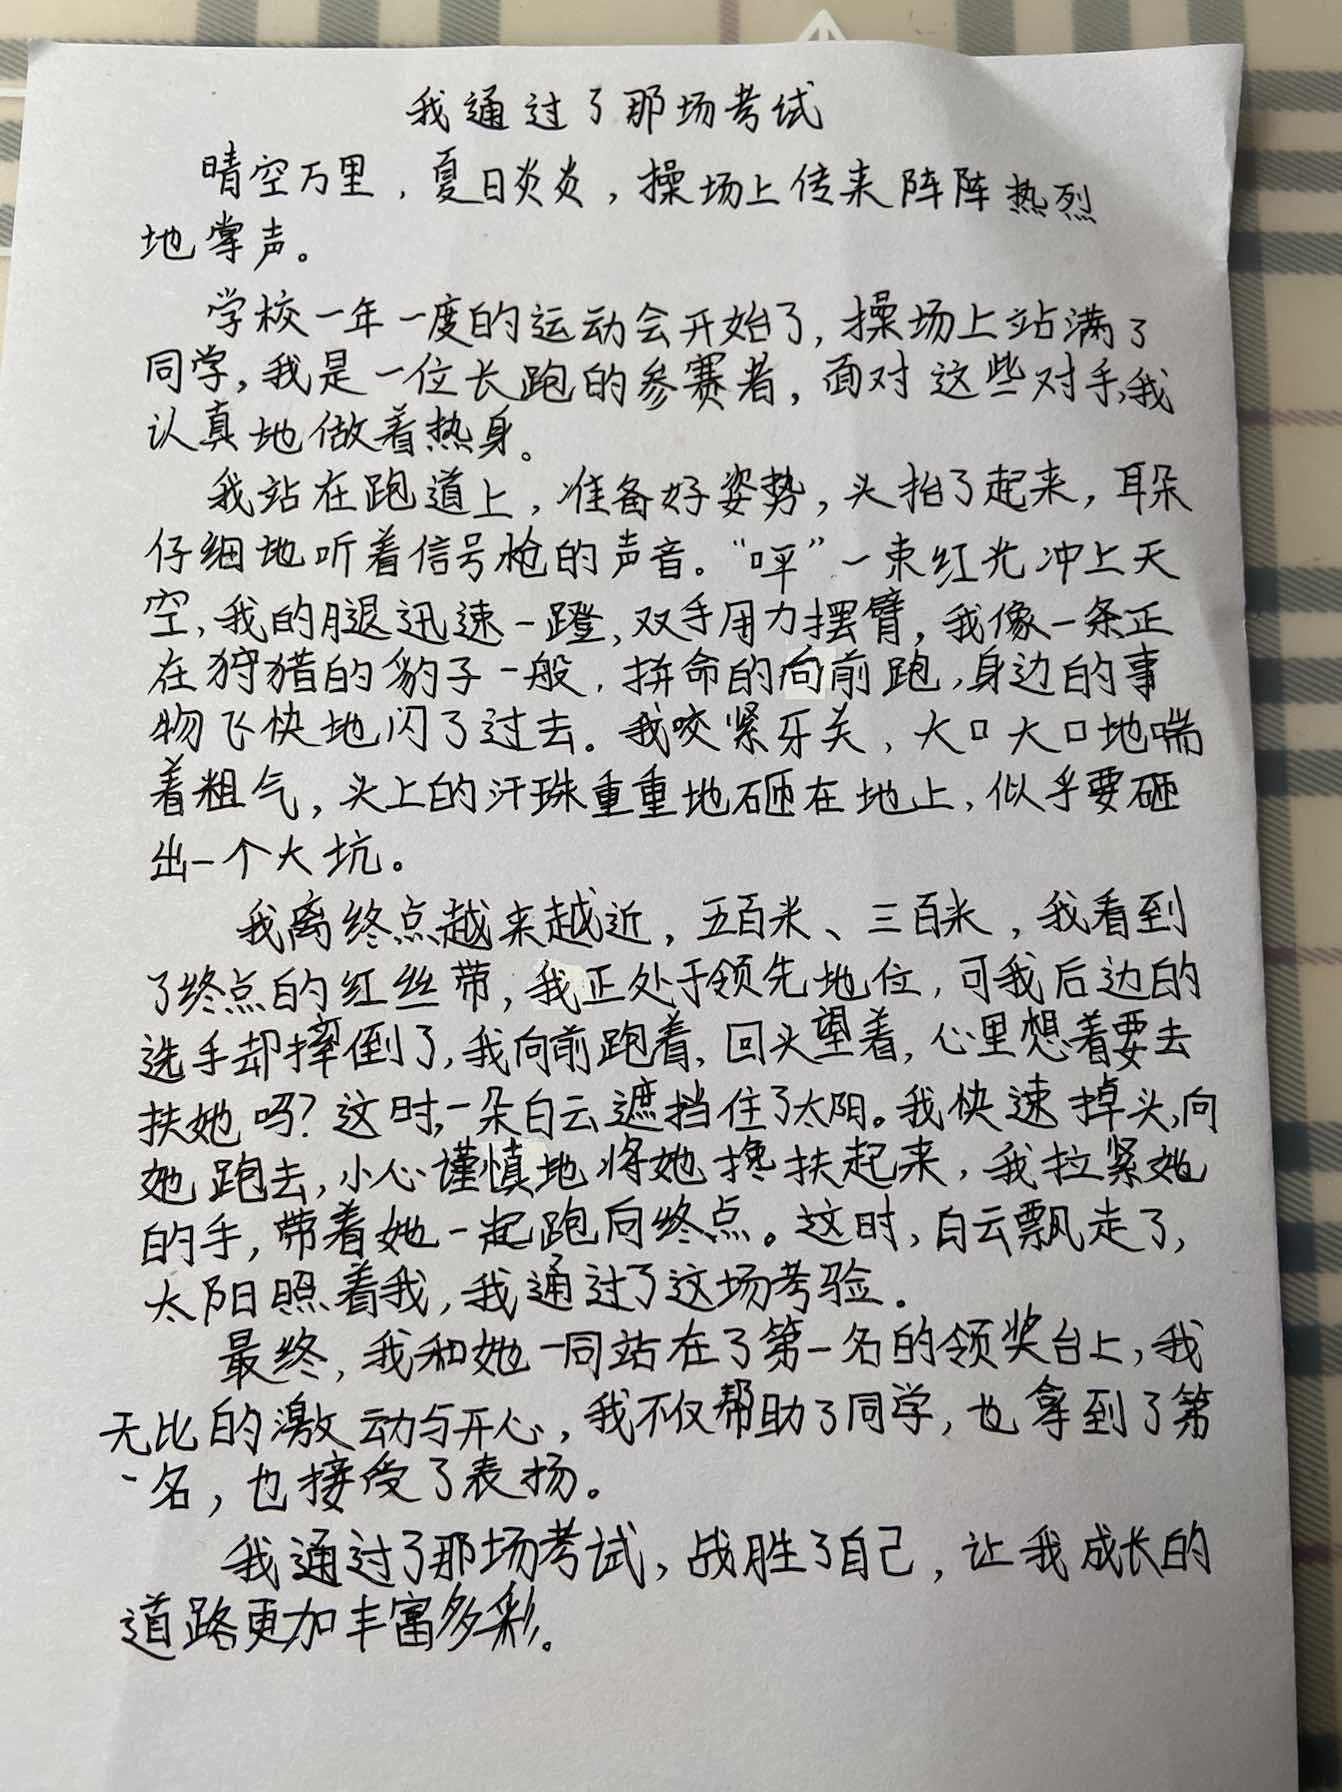 我通过了那场考试
晴空万里，夏日炎炎，操场上传来阵阵热烈
地掌声。
学校一年一度的运动会开始了，操场上站满了
同学，我是一位长跑的参赛者，面对这些对手，我
认真地做着热身。
我站在跑道上，准备好姿势，头抬了起来，耳朵
仔细地听着信号枪的声音。“呯”一束红光冲上天
空，我的腿迅速一蹬，双手用力摆臂，我像一条正
在狩猎的豹子一般，拼命的向前跑，身边的事
物飞快地闪了过去。我咬紧牙关，大口大口地喘
着粗气，头上的汗珠重重地砸在地上，似乎要砸
出一个大坑。
我离终点越来越近，五百米、三百米，我看到
了终点的红丝带，我正处于领先地位，可我后边的
选手却摔倒了，我向前跑着，回头望着，心里想着要去
扶她吗？这时，一朵白云遮挡住了太阳。我快速掉头，向
她跑去，小心谨慎地将她搀扶起来，我拉紧她
的手，带着她一起跑向终点。这时，白云飘走了，
太阳照着我，我通过了这场考验。
最终，我和她一同站在了第一名的领奖台上，我
无比的激动与开心，我不仅帮助了同学，也拿到了第
一名，也接受了表扬。
我通过了那场考试，战胜了自己，让我成长的
道路更加丰富多彩。